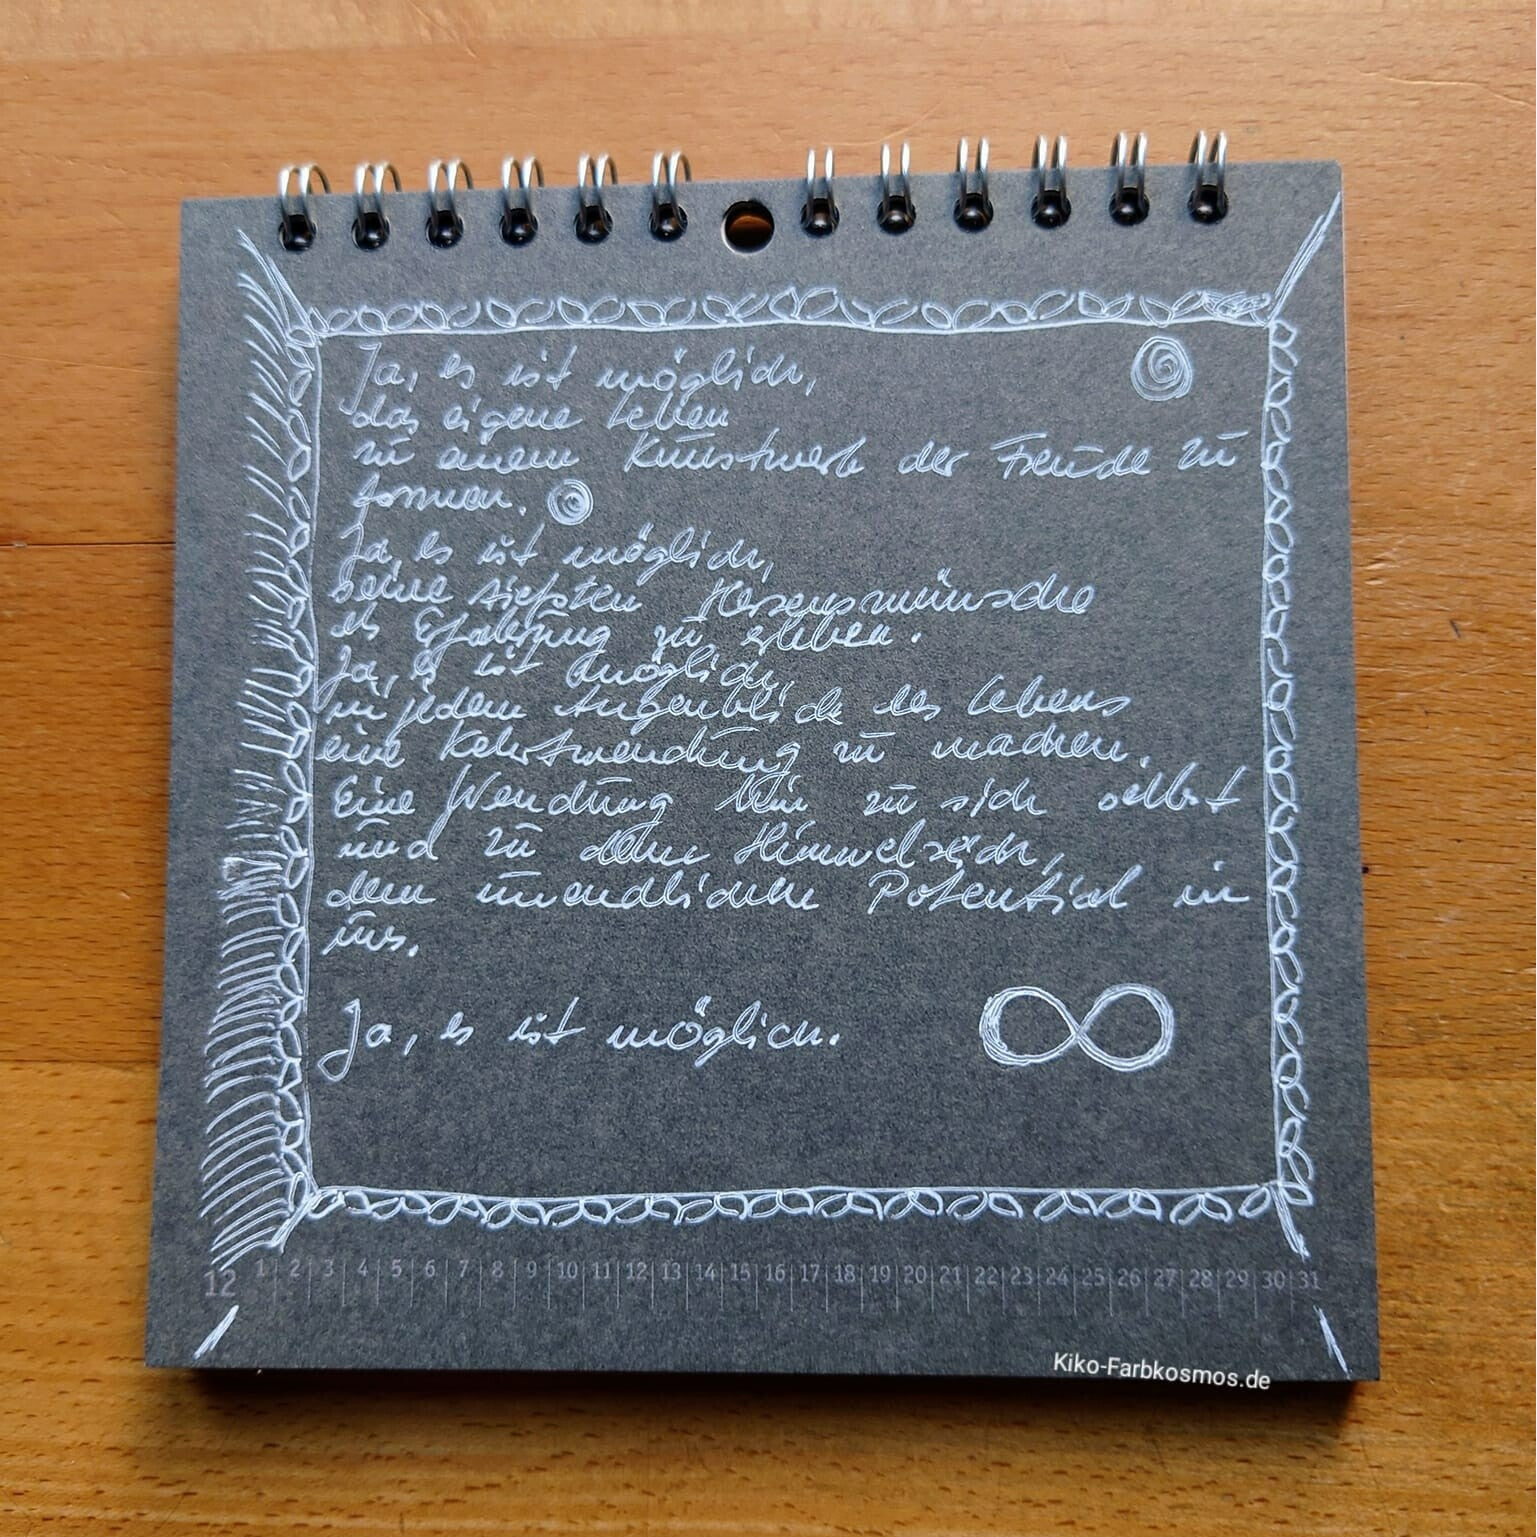 Ja, es ist möglich,
das eigene Leben
zu einem Kunstwerk der Freude zu
formen.
Ja, es ist möglich,
seine tiefsten Herzenswünsche
als Erfahrung zu erleben.
Ja, es ist möglich,
in jedem Augenblick des Lebens
eine Kehrtwendung zu machen.
Eine Wendung hin zu sich selbst
und zu dem Himmelreich,
dem unendlichen Potential in
uns.
Ja, es ist möglich.
12 1 2 3 4 5 6 7 8 9 10 11 12 13 14 15 16 17 18 19 20 21 22 23 24 25 26 27 28 29 30 31
Kiko-Farbkosmos.de